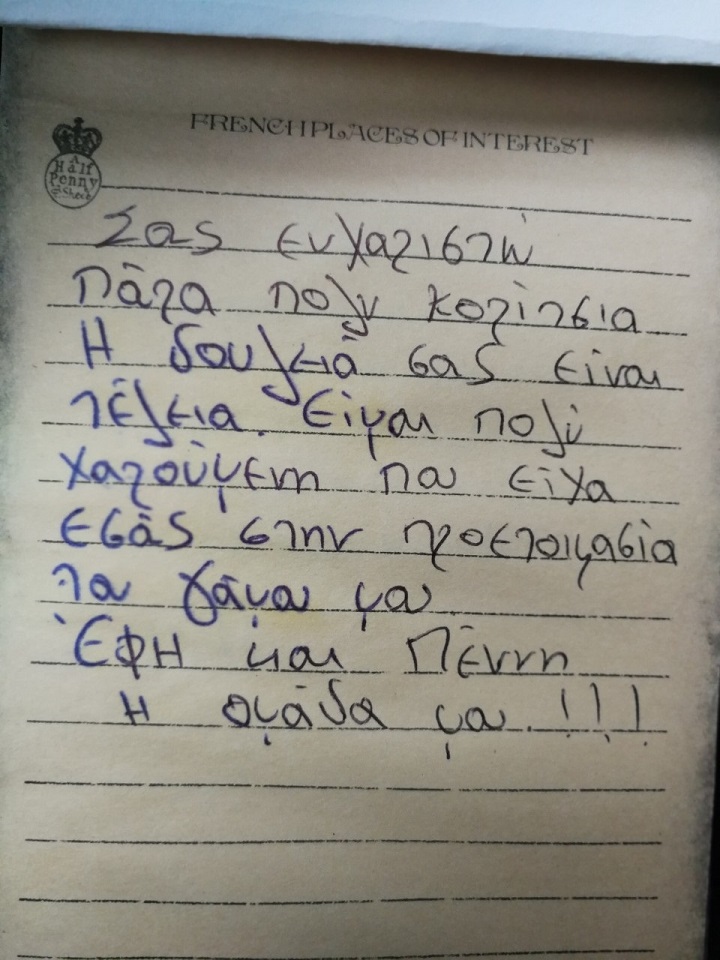 FRENCH PLACES OF INTEREST
A
Half
Penny
Σας ευχαριστώ
Πάρα πολυ κορίτσια
Η δουλειά σας είναι
τέλεια. Είμαι πολύ
χαρούμενη που είχα
εσάς στην προετοιμασία
του γάμου μου.
Έφη και Πέννη
Η ομάδα μου.!!!